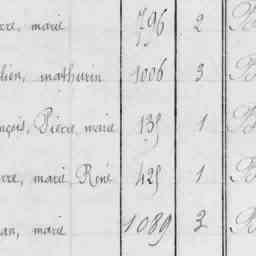 rre, marie 796 2 B
lien, mathurin 1006 3 B
nçois, Pierre, marie 135 1 B
rre, marie, René 425 1 B
an, marie 1089 3 B